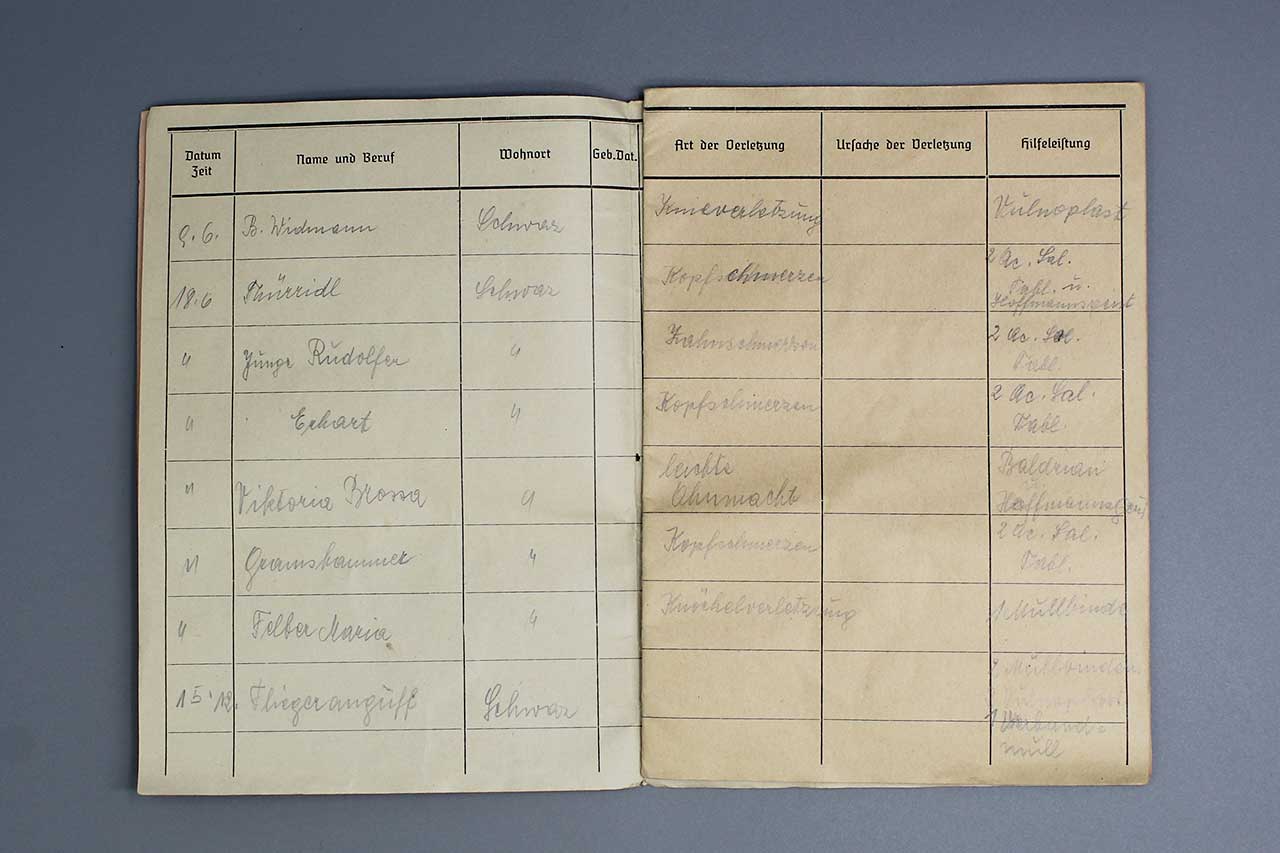 Datum Zeit | Name und Beruf | Wohnort | Geb.Dat. | Art der Verletzung | Ursache der Verletzung | Hilfeleistung
9.6. | B. Widmann | Schwaz | Knieverletzung | Vulnoplast
18.6 | Schwaz | Kopfschmerzen | 2 Ac. Sal. Tabl. u. Hoffmannsgeist
" | Junge Rudolfer | " | Zahnschmerzen | 2 Ac. Sal. Tabl.
" | Erhart | " | Kopfschmerzen | 2 Ac. Sal. Tabl.
" | Viktoria Brossa | " | leichte Ohnmacht | Baldrian
" | Gramshammer | " | Kopfschmerzen | 2 Ac. Sal. Tabl.
" | Felber Maria | " | Knöchelverletzung | 1 Mullbinde
15.12. | Fliegerangriff | Schwaz | Mullbinden
1 Verband-
mull